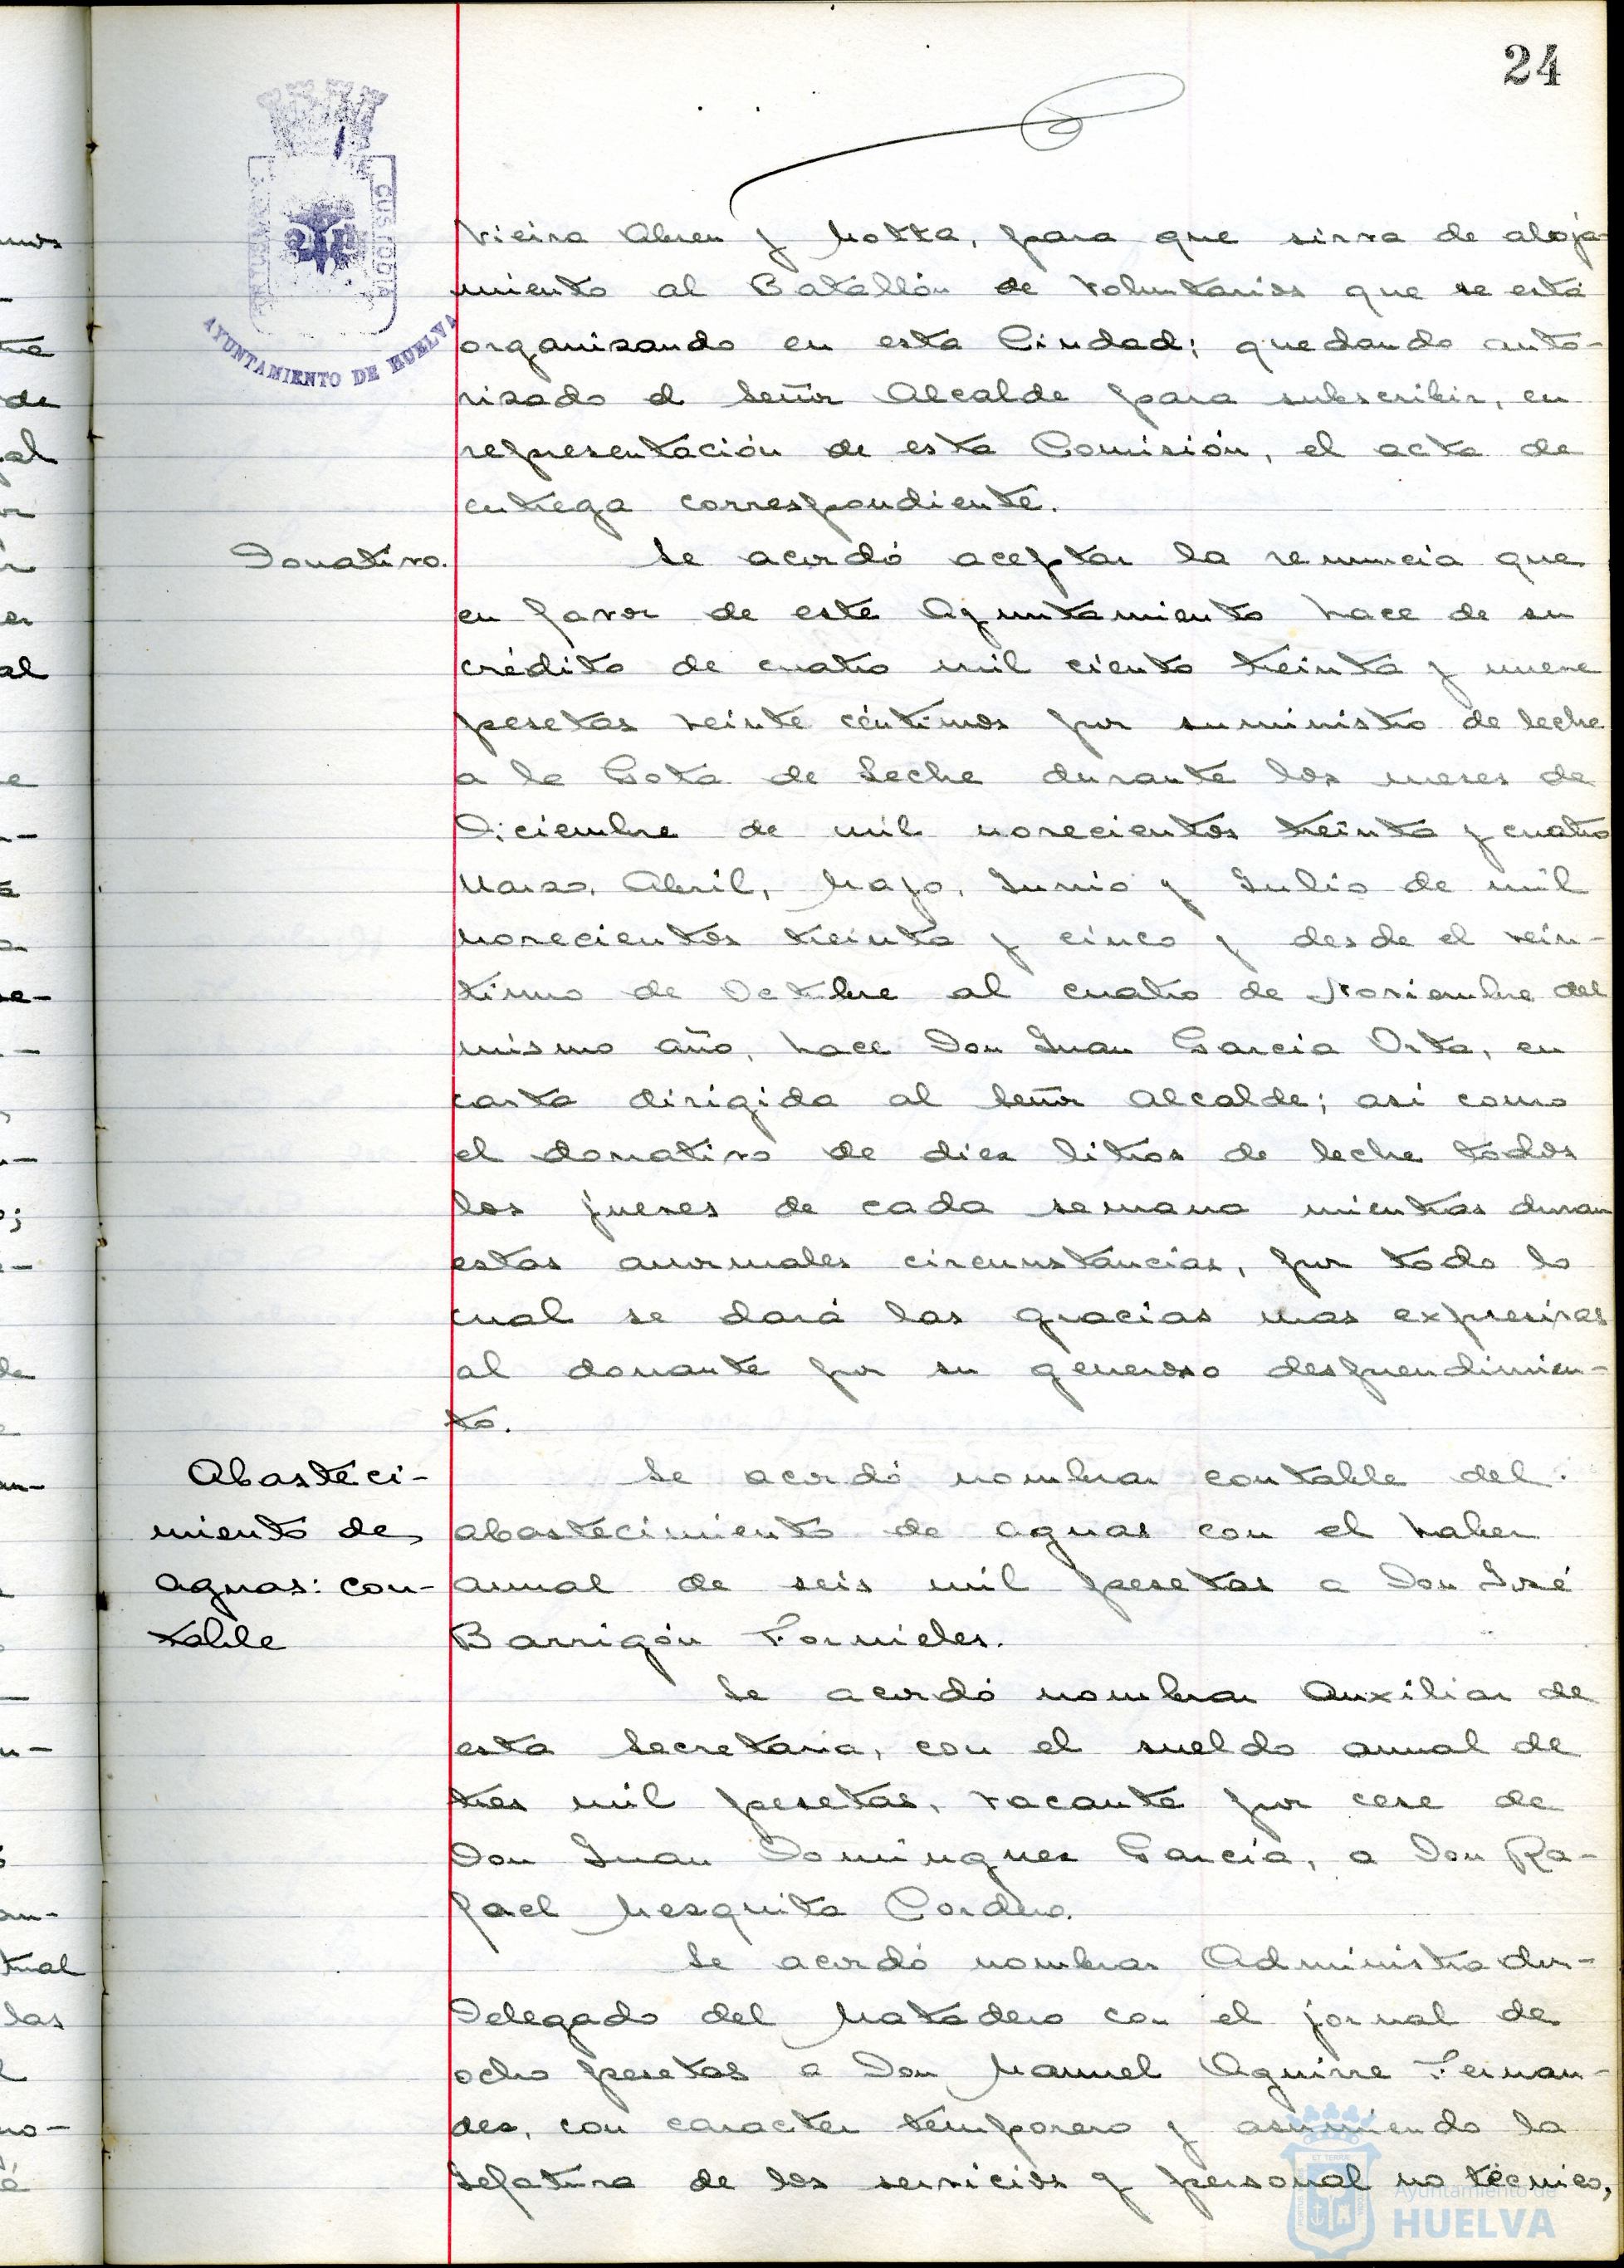 24
CUSTODIA
AYUNTAMIENTO DE HUELVA
Vieira Abreu y Motta, para que sirva de aloja-
miento al Batallón de Voluntarios que se está
organizando en esta Ciudad; quedando auto-
rizado el Señor Alcalde para subscribir, en
representación de esta Comisión, el acta de
entrega correspondiente.
Donativo.
Se acordó aceptar la renuncia que
en favor de este Ayuntamiento hace de su
crédito de cuatro mil ciento treinta y nueve
pesetas veinte céntimos por suministro de leche
a la Gota de Leche durante los meses de
Diciembre de mil novecientos treinta y cuatro
Marzo, Abril, Mayo, Junio y Julio de mil
novecientos treinta y cinco y desde el vein-
tiuno de Octubre al cuatro de Noviembre del
mismo año, hace Don Juan Garcia Orta, en
carta dirigida al Señor Alcalde; asi como
el donativo de diez litros de leche todos
los jueves de cada semana mientras duran
estas anormales circunstancias, por todo lo
cual se dará las gracias mas expresivas
al donante por su generoso desprendimien-
to.
Abasteci-
miento de
aguas: con-
table
Se acordó nombrar contable del
abastecimiento de aguas con el haber
anual de seis mil pesetas a Don José
Barrigón Fornieles.
Se acordó nombrar Auxiliar de
esta Secretaria, con el sueldo anual de
tres mil pesetas, vacante por cese de
Don Juan Dominguez Garcia, a Don Ra-
fael Mezquita Cordero.
Se acordó nombrar Administrador-
Delegado del Matadero con el jornal de
ocho pesetas a Don Manuel Aguirre Fernan-
dez, con caracter temporero y asumiendo la
Jefatura de los servicios y personal no técnico,
Ayuntamiento de
HUELVA